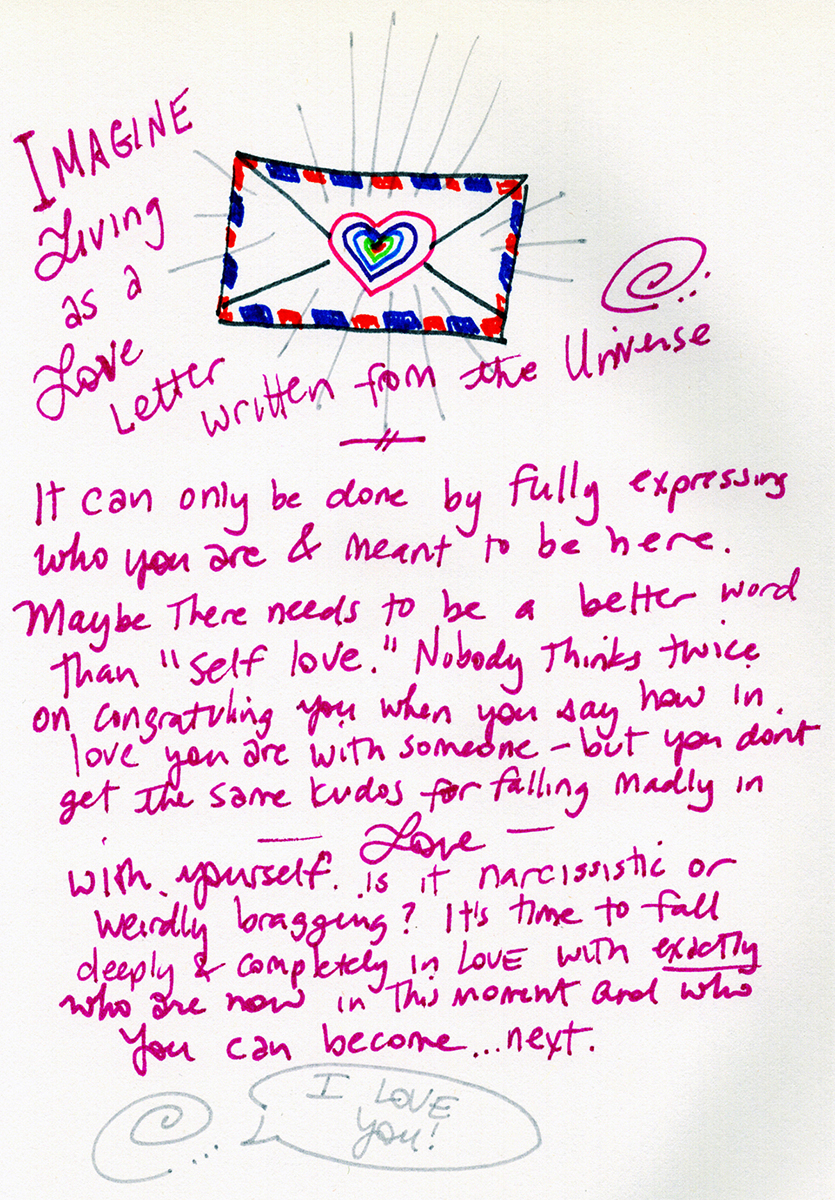 IMAGINE
Living
as a
Love
Letter
written from the Universe
It can only be done by fully expressing
who you are & meant to be here.
Maybe There needs to be a better word
than "self love." Nobody Thinks twice
on congratuling you when you say how in
love you are with someone - but you dont
get the same kudos for falling madly in
— Love —
with yourself. is it narcissistic or
weirdly bragging? It's time to fall
deeply & completely in LOVE with exactly
who are now in This moment and who
you can become...next.
I LOVE
YOU!